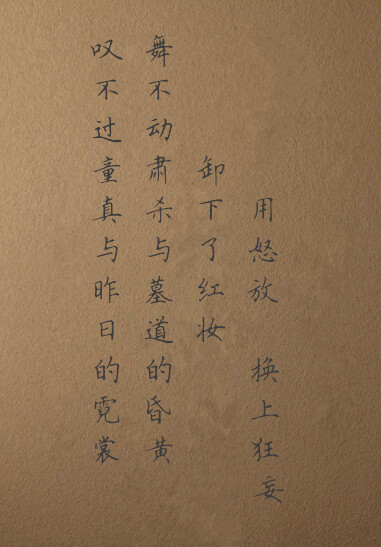 叹不过童真与昨日的霓裳
舞不动肃杀与墓道的昏黄
卸下了红妆
用怒放 换上狂妄